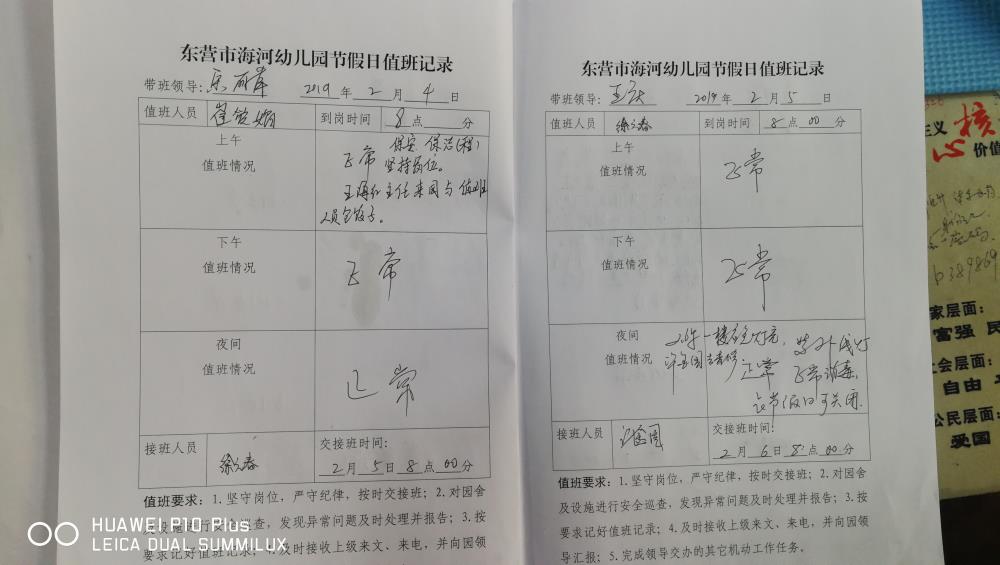 东营市海河幼儿园节假日值班记录
带班领导: 2019 年 2 月 4 日
值班人员
到岗时间 8 点 分
上午
值班情况
正常 保安 保洁(程)
坚持岗位。
王海红主任来园与值班
人员包饺子。
下午
值班情况
正常
夜间
值班情况
正常
接班人员 徐立春
交接班时间:
2 月 5 日 8 点 00 分
值班要求: 1. 坚守岗位,严守纪律,按时交接班; 2. 对园舍
及设施进行安全巡查,发现异常问题及时处理并报告; 3. 按
要求记好值班记录; 4. 及时接收上级来文、来电,并向园领
东营市海河幼儿园节假日值班记录
带班领导: 2019 年 2 月 5 日
值班人员 徐立春
到岗时间 8 点 00 分
上午
值班情况
正常
下午
值班情况
正常
夜间
值班情况
正常
紫外线灯
正常消毒,
节假日可关闭.
接班人员
交接班时间:
2 月 6 日 8 点 00 分
值班要求: 1. 坚守岗位,严守纪律,按时交接班; 2. 对园舍
及设施进行安全巡查,发现异常问题及时处理并报告; 3. 按
要求记好值班记录; 4. 及时接收上级来文、来电,并向园领
导汇报; 5. 完成领导交办的其它机动工作任务。
义 核
心 价值
家层面:
富强 民
会层面:
自由
公民层面:
爱国
HUAWEI P10 Plus
LEICA DUAL SUMMILUX